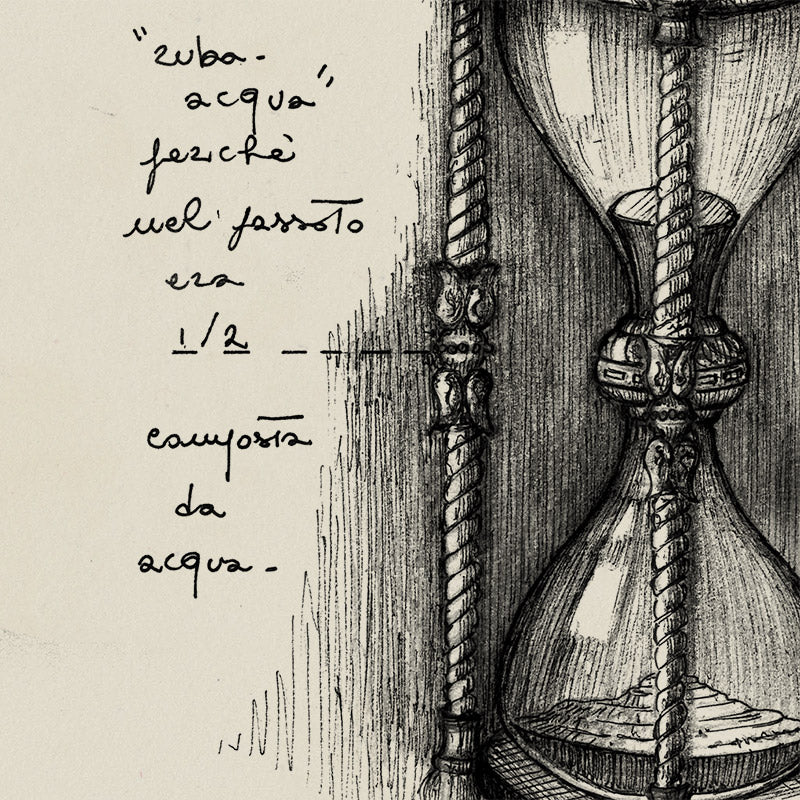 "ruba-
acqua"
perchè
nel passato
era
1/2
composta
da
acqua.